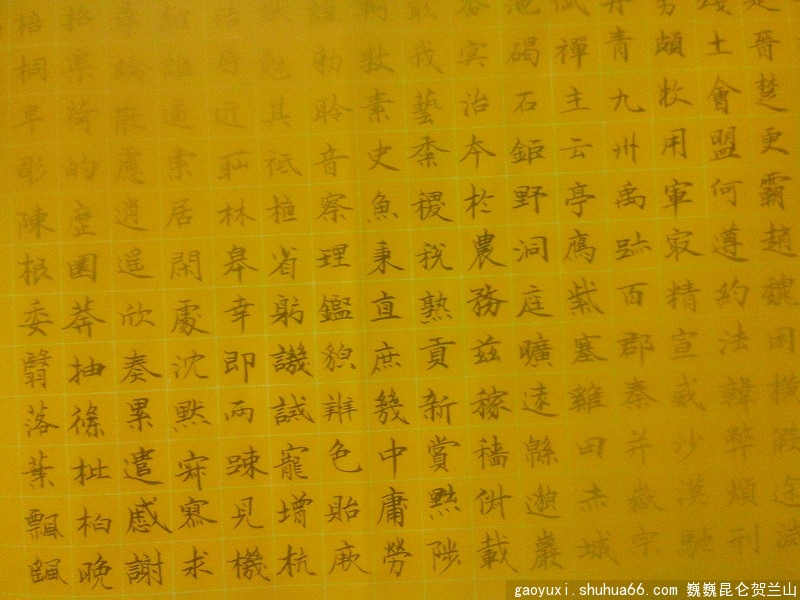 晉楚更霸趙魏困橫假途滅
踐土會盟何遵約法韓弊煩刑
頗牧用軍最精宣威沙漠馳
丹青九州禹跡百郡秦并嶽宗
禪主云亭鴈紫塞雞田赤城
池碣石鉅野洞庭曠遠緜邈巖
杳冥治本於農務茲稼穡俶載
我藝黍稷稅熟貢新賞黜陟
軻敦素史魚秉直庶幾中庸勞
謹勅聆音察理鑑貌辨色貽厥
猷勉其祗植省躬譏誡寵增抗
殆辱近恥林皋幸即兩疎見機
組誰逼索居閑處沈默寂寥求
尋論散慮逍遙欣奏累遣慼謝
招渠荷的歷園莽抽條枇杷晚
梧桐早彫陳根委翳落葉飄颻
gaoyuxi.shuhua66.com 巍巍昆仑贺兰山